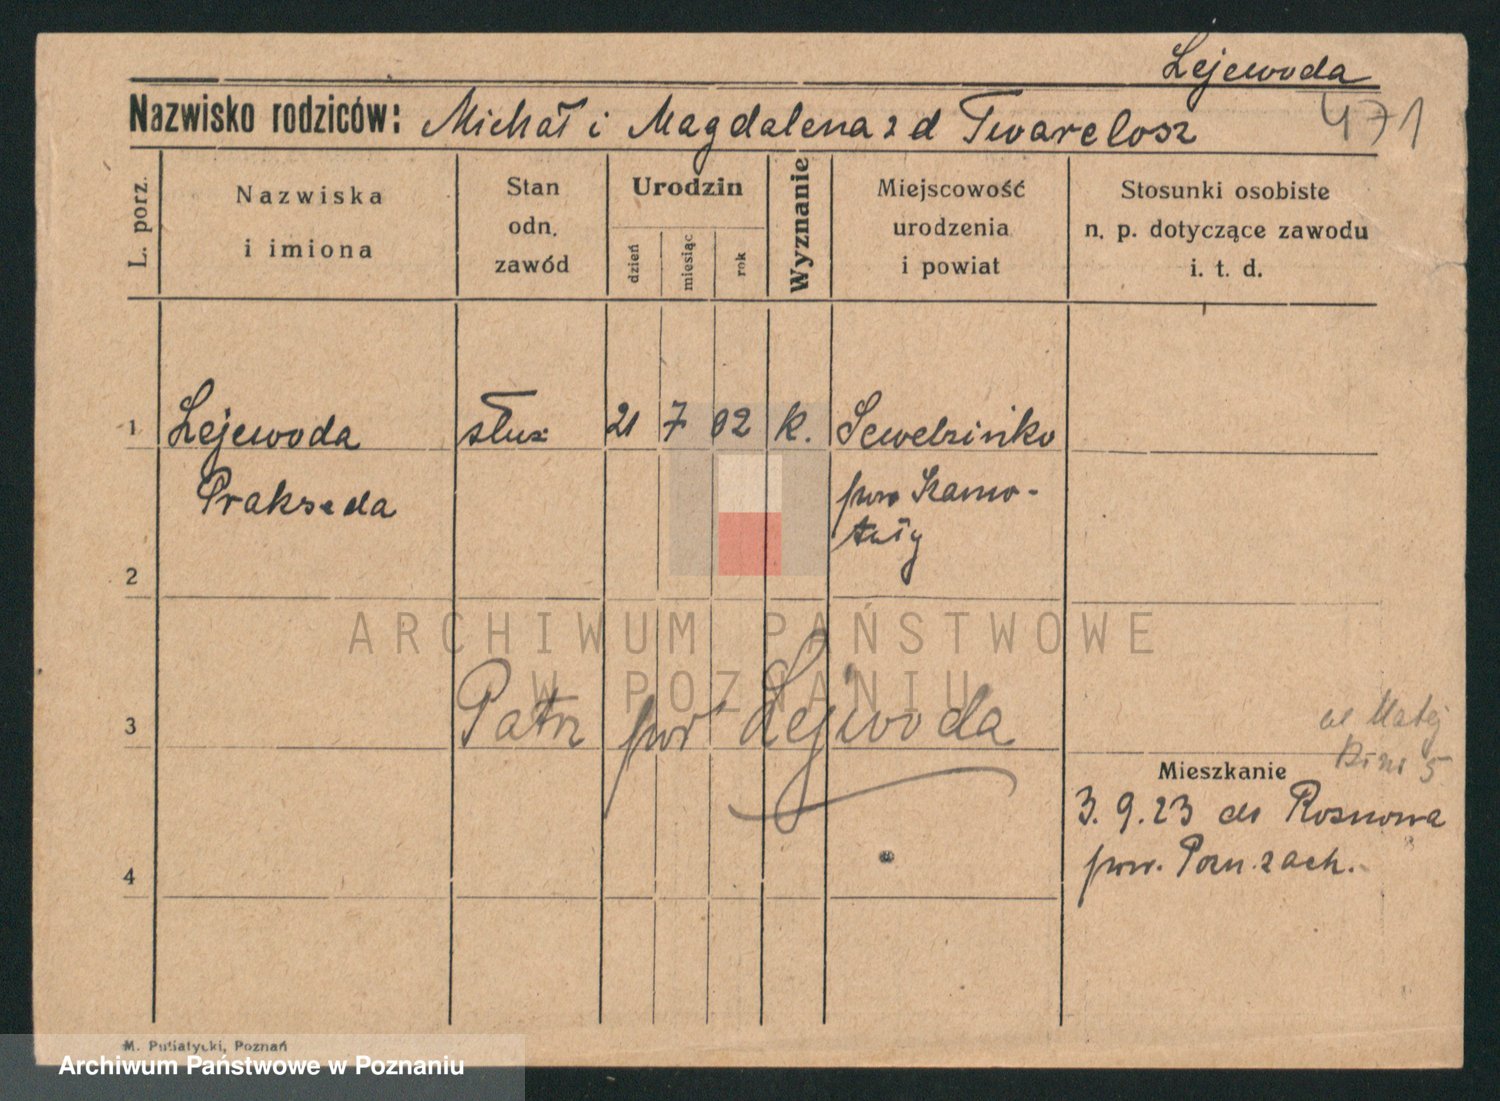 Lejewoda
Nazwisko rodziców: Michał i Magdalena z d Twarelosz
471
L. porz.
Nazwiska
i imiona
Stan
odn.
zawód
Urodzin
dzień
miesiąc
rok
Wyznanie
Miejscowość
urodzenia
i powiat
Stosunki osobiste
n. p. dotyczące zawodu
i. t. d.
1 Lejewoda służ 21 7 02 k. Sewedzinko
Prakseda pow Szamo-
tuły
2
ARCHIWUM PAŃSTWOWE
W POZNANIU
3 Patrz pow Lejwoda
ul Matej
5
Mieszkanie
3. 9. 23 do Rosnowa
pow. Pozn. zach.
4
M. Putiatycki, Poznań
Archiwum Państwowe w Poznaniu